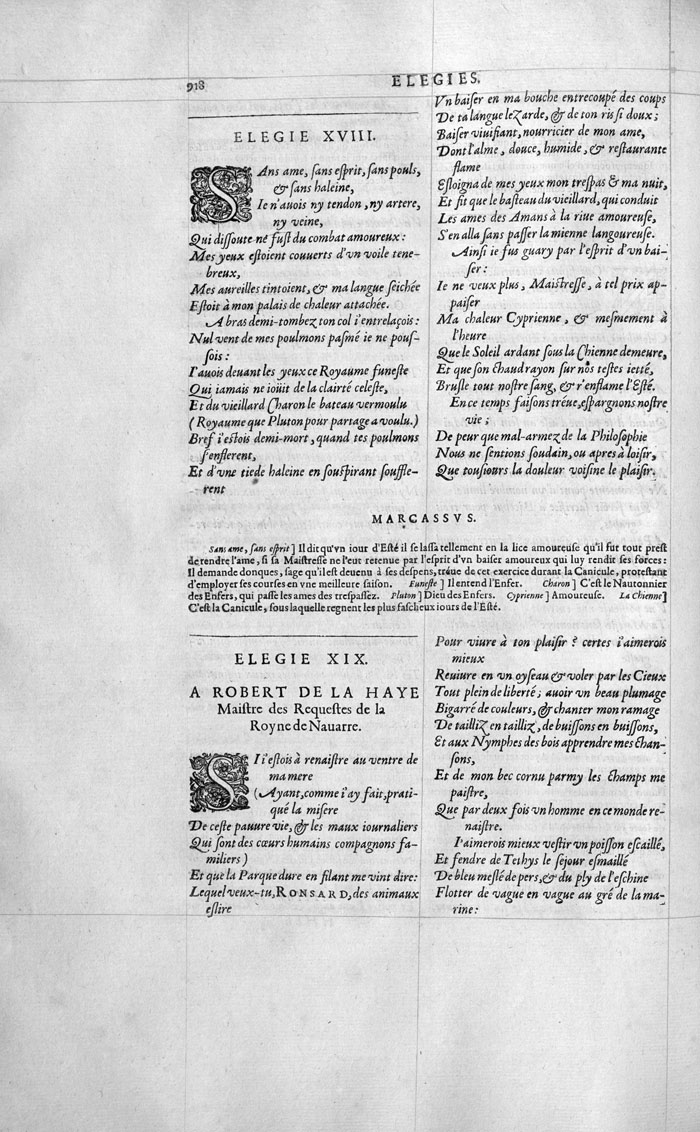 918
ELEGIES.
ELEGIE XVIII.
SAns ame, ſans eſprit, ſans pouls,
& ſans haleine,
Ie n'auois ny tendon, ny artere,
ny veine,
Qui diſſoute ne fuſt du combat amoureux:
Mes yeux eſtoient couuerts d'vn voile tene-
breux,
Mes aureilles tintoient, & ma langue ſeichée
Eſtoit à mon palais de chaleur attachée.
A bras demi-tombez ton col i'entrelaçois:
Nul vent de mes poulmons paſmé ie ne pouſ-
ſois:
I'auois deuant les yeux ce Royaume funeſte
Qui iamais ne ioüit de la clairté celeſte,
Et du vieillard Charon le bateau vermoulu
(Royaume que Pluton pour partage a voulu.)
Bref i'eſtois demi-mort, quand tes poulmons
s'enflerent,
Et d'vne tiede haleine en ſouſpirant ſouffle-
rent
Vn baiſer en ma bouche entrecoupé des coups
De ta langue lezarde, & de ton ris ſi doux;
Baiſer viuifiant, nourricier de mon ame,
Dont l'alme, douce, humide, & reſtaurante
flame
Eſloigna de mes yeux mon treſpas & ma nuit,
Et fit que le baſteau du vieillard, qui conduit
Les ames des Amans à la riue amoureuſe,
S'en alla ſans paſſer la mienne langoureuſe.
Ainſi ie fus guary par l'eſprit d'vn bai-
ſer:
Ie ne veux plus, Maiſtreſſe, à tel prix ap-
paiſer
Ma chaleur Cyprienne, & meſmement à
l'heure
Que le Soleil ardant ſous la Chienne demeure,
Et que ſon chaud rayon ſur nos teſtes ietté,
Bruſle tout noſtre ſang, & r'enflame l'Eſté.
En ce temps faiſons tréue, eſpargnons noſtre
vie;
De peur que mal-armez de la Philoſophie
Nous ne ſentions ſoudain, ou apres à loiſir,
Que touſiours la douleur voiſine le plaiſir.
MARCASSVS.
Sans ame, ſans eſprit] Il dit qu'vn iour d'Eſté il ſe laſſa tellement en la lice amoureuſe qu'il fut tout preſt
de rendre l'ame, ſi ſa Maiſtreſſe ne l'eut retenue par l'eſprit d'vn baiſer amoureux qui luy rendit ſes forces:
Il demande donques, ſage qu'il eſt deuenu à ſes deſpens, tréue de cet exercice durant la Canicule, proteſtant
d'employer ſes courſes en vne meilleure ſaiſon. Funeſte] Il entend l'Enfer. Charon] C'eſt le Nautonnier
des Enfers, qui paſſe les ames des treſpaſſez. Pluton] Dieu des Enfers. Cyprienne] Amoureuſe. La Chienne]
C'eſt la Canicule, ſous laquelle regnent les plus faſcheux iours de l'Eſté.
ELEGIE XIX.
A ROBERT DE LA HAYE
Maiſtre des Requeſtes de la
Royne de Nauarre.
SI i'eſtois à renaiſtre au ventre de
ma mere
(Ayant, comme i'ay fait, prati-
qué la miſere
De ceſte pauure vie, & les maux iournaliers
Qui ſont des cœurs humains compagnons fa-
miliers)
Et que la Parque dure en filant me vint dire:
Lequel veux-tu, RONSARD, des animaux
eſlire
Pour viure à ton plaiſir? certes i'aimerois
mieux
Reuiure en vn oyſeau & voler par les Cieux
Tout plein de liberté; auoir vn beau plumage
Bigarré de couleurs, & chanter mon ramage
De tailliz en tailliz, de buiſſons en buiſſons,
Et aux Nymphes des bois apprendre mes chan-
ſons,
Et de mon bec cornu parmy les champs me
paiſtre,
Que par deux fois vn homme en ce monde re-
naiſtre.
I'aimerois mieux veſtir vn poiſſon eſcaillé,
Et fendre de Tethys le ſejour eſmaillé
De bleu meſlé de pers, & du ply de l'eſchine
Flotter de vague en vague au gré de la ma-
rine: